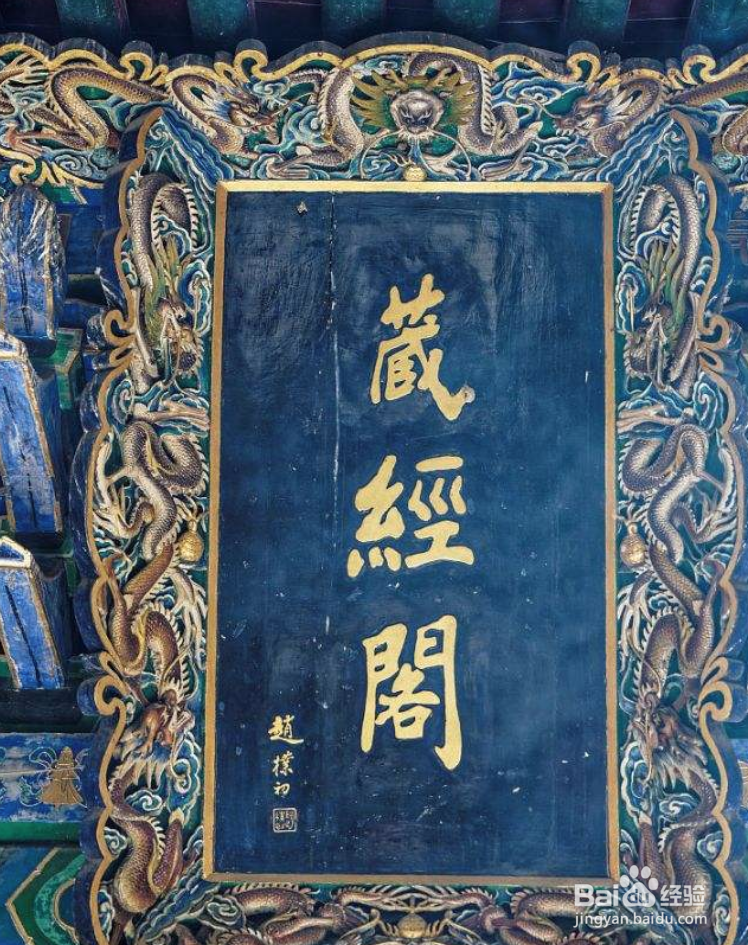 藏經閣
趙樸初
Bai du 经验
jingyan.baidu.com